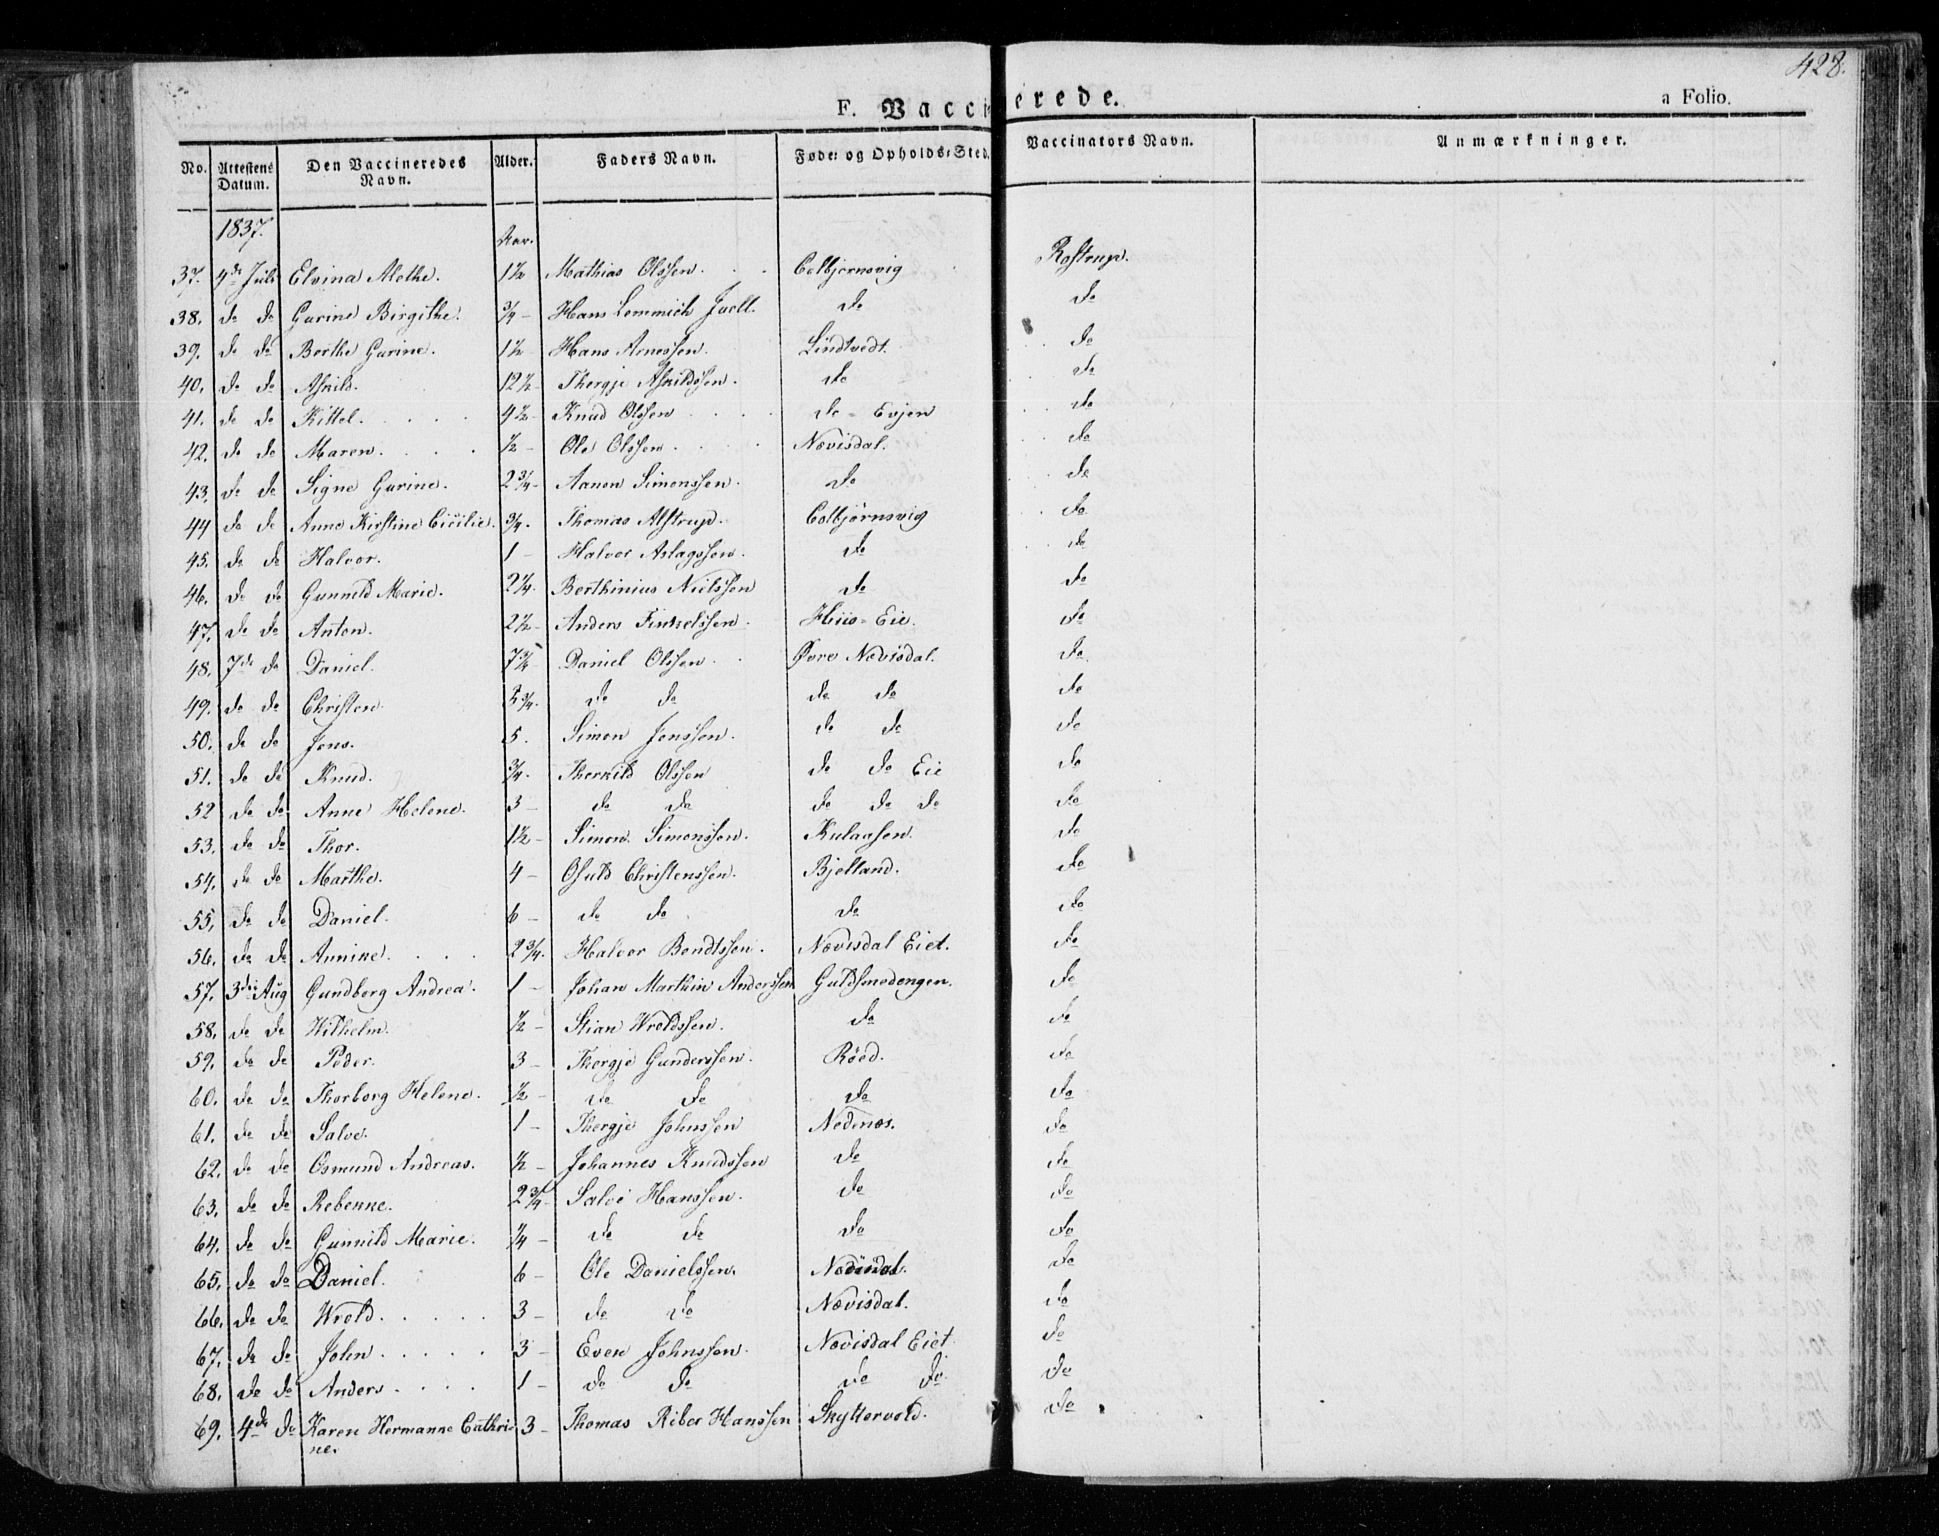 428.
F. Vaccinerede. a Folio.
No. Attestens Datum. Den Vaccineredes Navn. Alder. Faders Navn. Føde- og Opholds-Sted. Vaccinators Navn. Anmærkninger.
1837. Aar.
37. 4de Juli Elvina Alethe. 1½ Mathias Olssen. Colbjørnsvig Rostrup.
38. do do Gurine Birgithe. ¾ - Hans Lemmich Juell. do do
39. do do Berthe Gurine. 1½ Hans Arnessen. Lindtvedt. do
40. do do Askild. 12½ - Thergje Askildssen. do do
41. do do Kittel. 4½ - Knud Olssen do - Evjen do
42. do do Maren. ½ - Ole Olssen. Nævisdal. do
43. do do Signe Gurine. 2¾ - Aanon Simonssen. do do
44 do do Anne Kirstine Cicilie. ¾. Thomas Alstrup. Colbjørnsvig do
45. do do Halvor. 1 - Halvor Aslagssen. do do
46. do do Gunnild Marie. 2¼. Berthinius Nielssen do do
47. do do Anton. 2½ - Anders Finkelssen. Hiis-Eie. do
48. 7de do Daniel. 7¾ - Daniel Olssen. Øvre Nævisdal. do
49. do do Christen. 2¾. do do do do do
50. do do Jens. 5. Simon Jenssen. do do do
51. do do Knud. ¾. Therkild Olssen do do Eie do
52 do do Anne Helene. 3 - do do do do do do
53. do do Thor. 1½ - Simon Simonssen. Kulaasen. do
54. do do Marthe. 4 - Osuld Christenssen. Bjelland. do
55. do do Daniel. 6 - do do do do
56. do do Annine. 2¾. Halvor Bendtssen. Nævisdal Eiet. do
57. 3die Aug Gundborg Andrea. 1 - Johan Marthin Anderssen Guldsmedengen. do
58. do do Wilhelm. ½ - Stian Wroldssen. do do
59. do do Peder. 3 - Thergje Gunderssen. Røed. do
60. do do Thorborg Helene. ½ - do do do do
61. do do Salve. 1 - Thergje Johnssen Nedenæs. do
62. do do Osmund Andreas. ½ - Johannes Knudssen do do
63. do do Rebenne. 2¾ - Salve Hanssen. do do
64. do do Gunnild Marie. ¼ - do do do do
65. do do Daniel. 6 - Ole Danielssen. do
66. do do Wrold. 3 - do do Nævisdal. do
67. do do John. 3 - Even Johnssen. Nævisdal Eiet. do
68. do do Anders. 1 - do do do do do
69. 4de do Karen Hermanne Cathri- 3 - Thomas Riber Hanssen Skyttervold. do
ne.